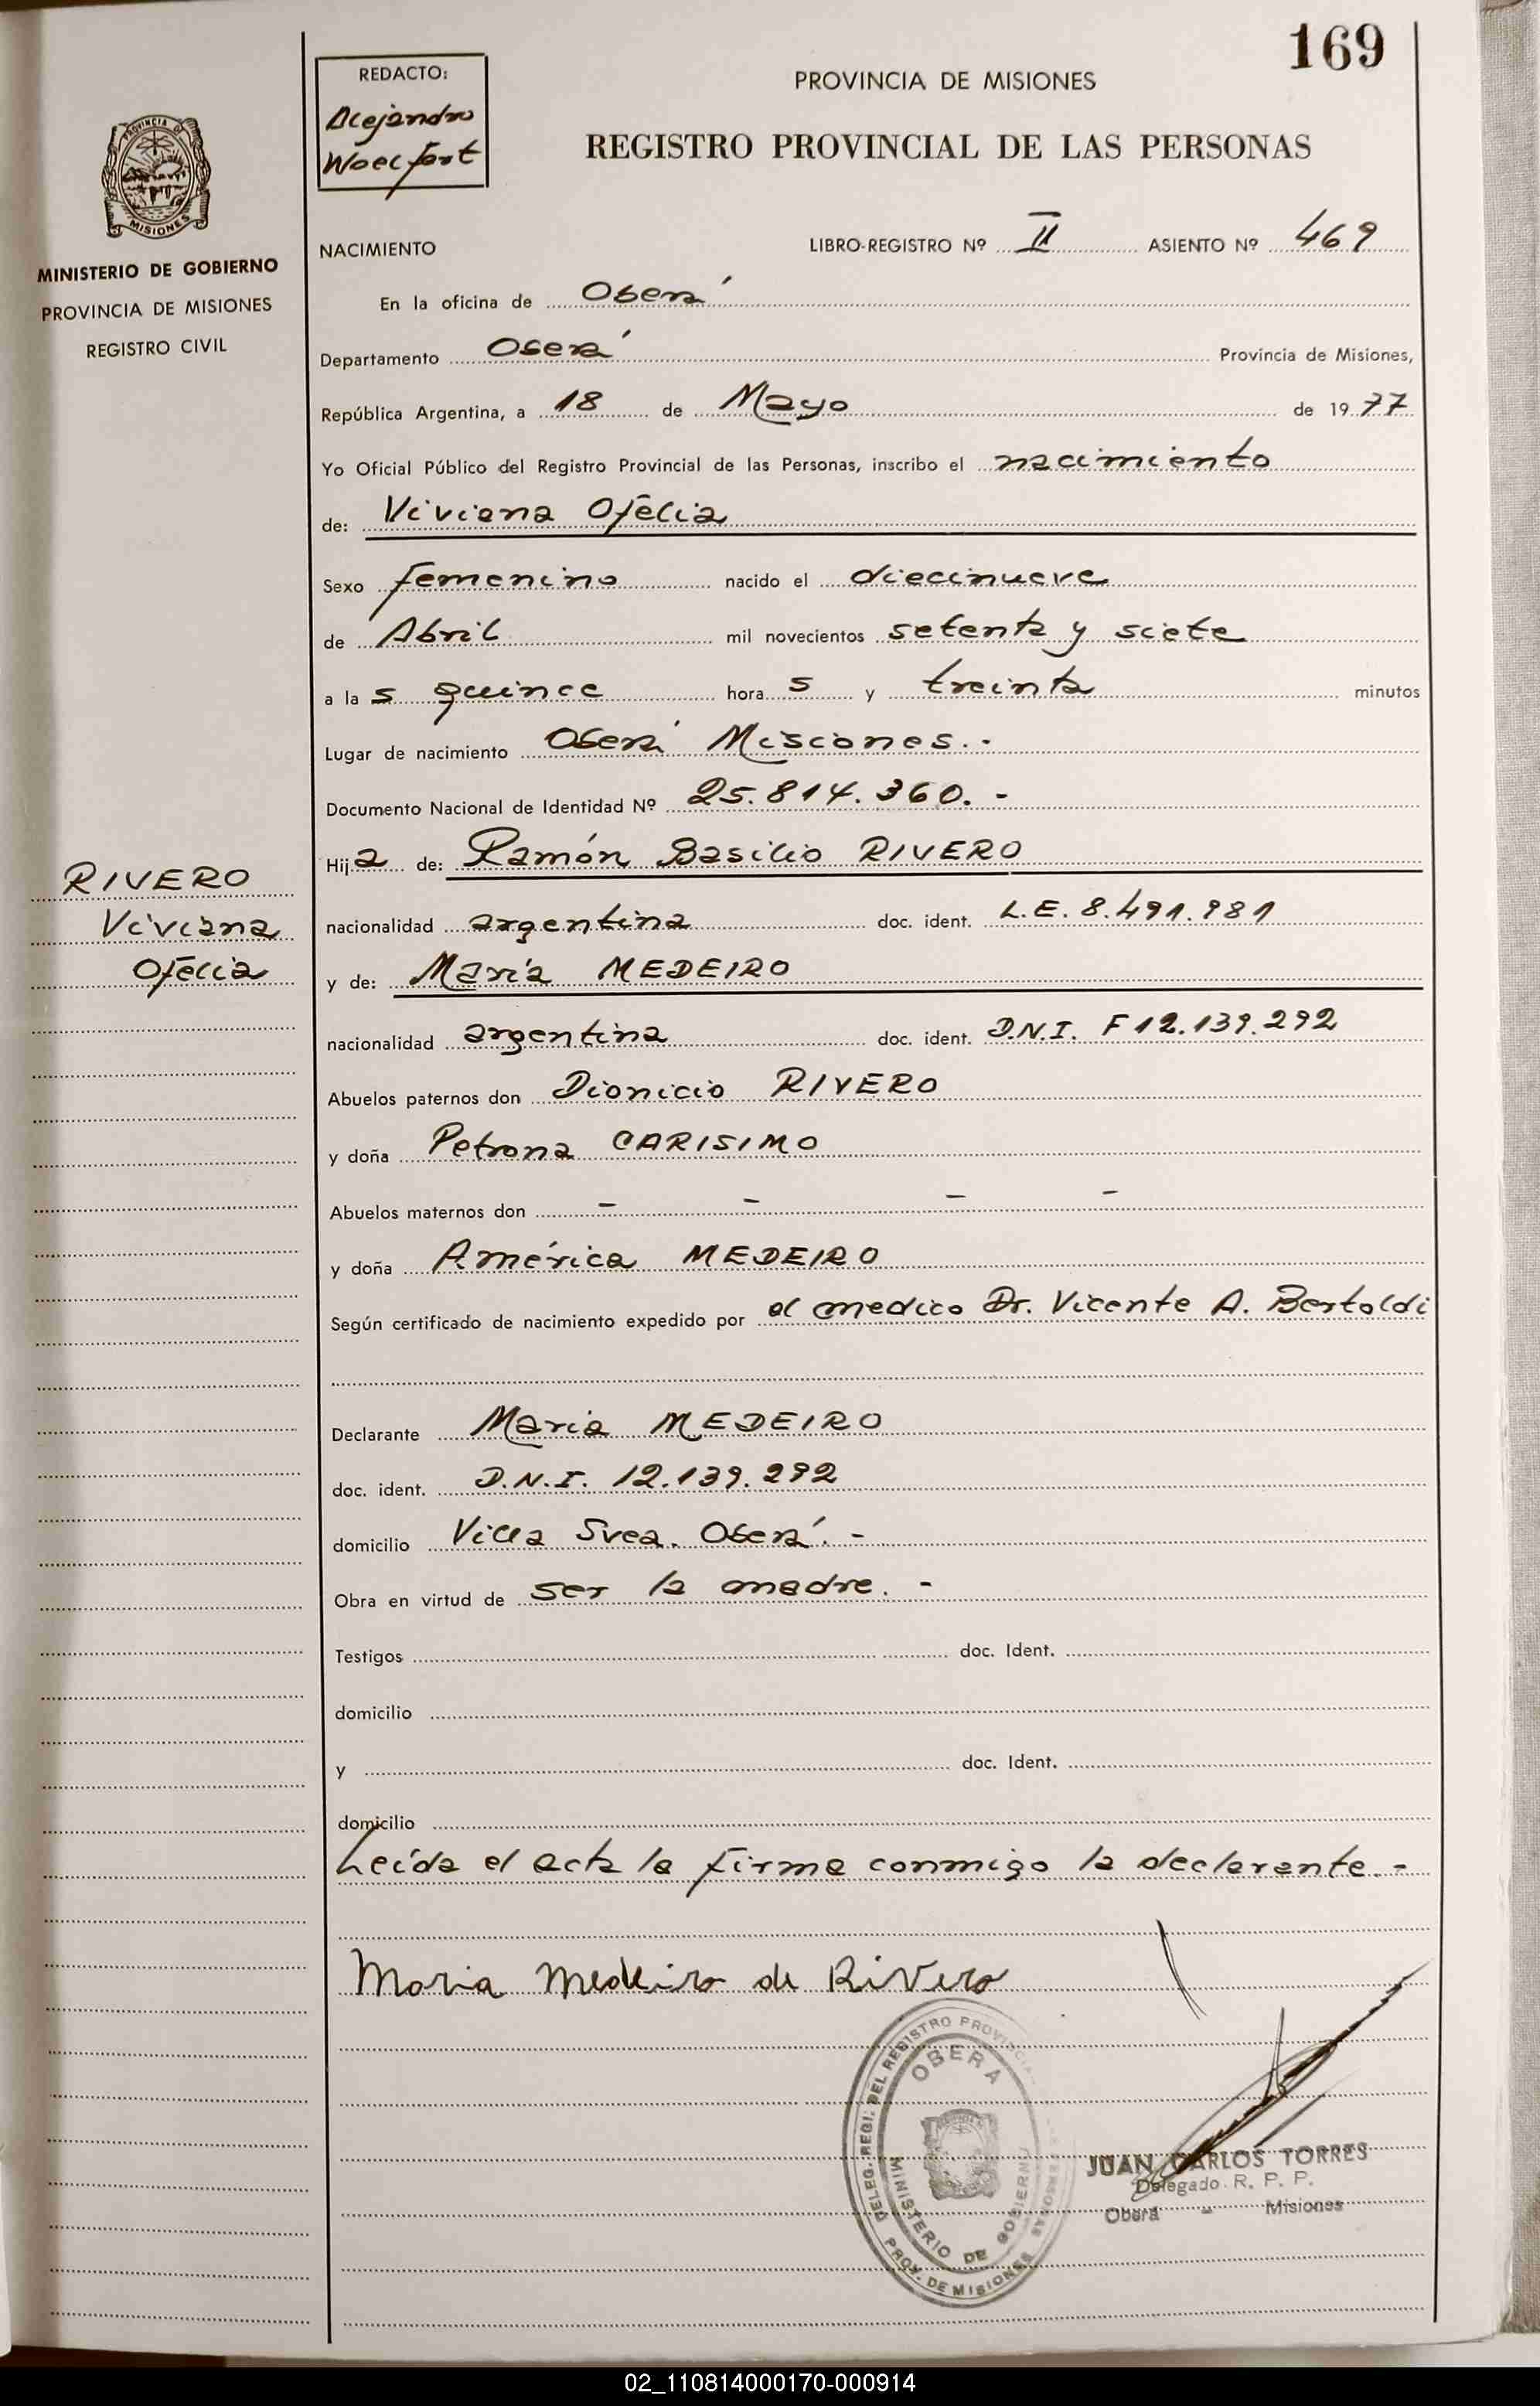 169
REDACTO:
Alejandro
Woelfert
PROVINCIA DE MISIONES
REGISTRO PROVINCIAL DE LAS PERSONAS
PROVINCIA DE
MISIONES
MINISTERIO DE GOBIERNO
PROVINCIA DE MISIONES
REGISTRO CIVIL
NACIMIENTO LIBRO-REGISTRO Nº II ASIENTO Nº 469
En la oficina de Oberá
Departamento Oberá Provincia de Misiones,
República Argentina, a 18 de Mayo de 1977
Yo Oficial Público del Registro Provincial de las Personas, inscribo el nacimiento
de: Viviana Ofelia
Sexo femenino nacido el diecinueve
de Abril mil novecientos setenta y siete
a las quince horas y treinta minutos
Lugar de nacimiento Oberá Misiones.-
Documento Nacional de Identidad Nº 25.814.360.-
Hija de: Ramón Basilio RIVERO
RIVERO
Viviana
Ofelia
nacionalidad argentina doc. ident. L.E. 8.491.981
y de: María MEDEIRO
nacionalidad argentina doc. ident. D.N.I. F12.139.292
Abuelos paternos don Dionicio RIVERO
y doña Petrona CARISIMO
Abuelos maternos don - - - -
y doña América MEDEIRO
Según certificado de nacimiento expedido por el medico Dr. Vicente A. Bertoldi
Declarante Maria MEDEIRO
doc. ident. D.N.I. 12.139.292
domicilio Villa Svea. Oberá.-
Obra en virtud de ser la madre.-
Testigos doc. Ident.
domicilio
y doc. Ident.
domicilio
Leída el acta la firma conmigo la declarante.-
Maria Medeiro de Rivero
DELEG. REGI. DEL REGISTRO PROVINCIAL
OBERA
MINISTERIO DE GOBIERNO
PROV. DE MISIONES
JUAN CARLOS TORRES
Delegado R. P. P.
Oberá - Misiones
02_110814000170-000914